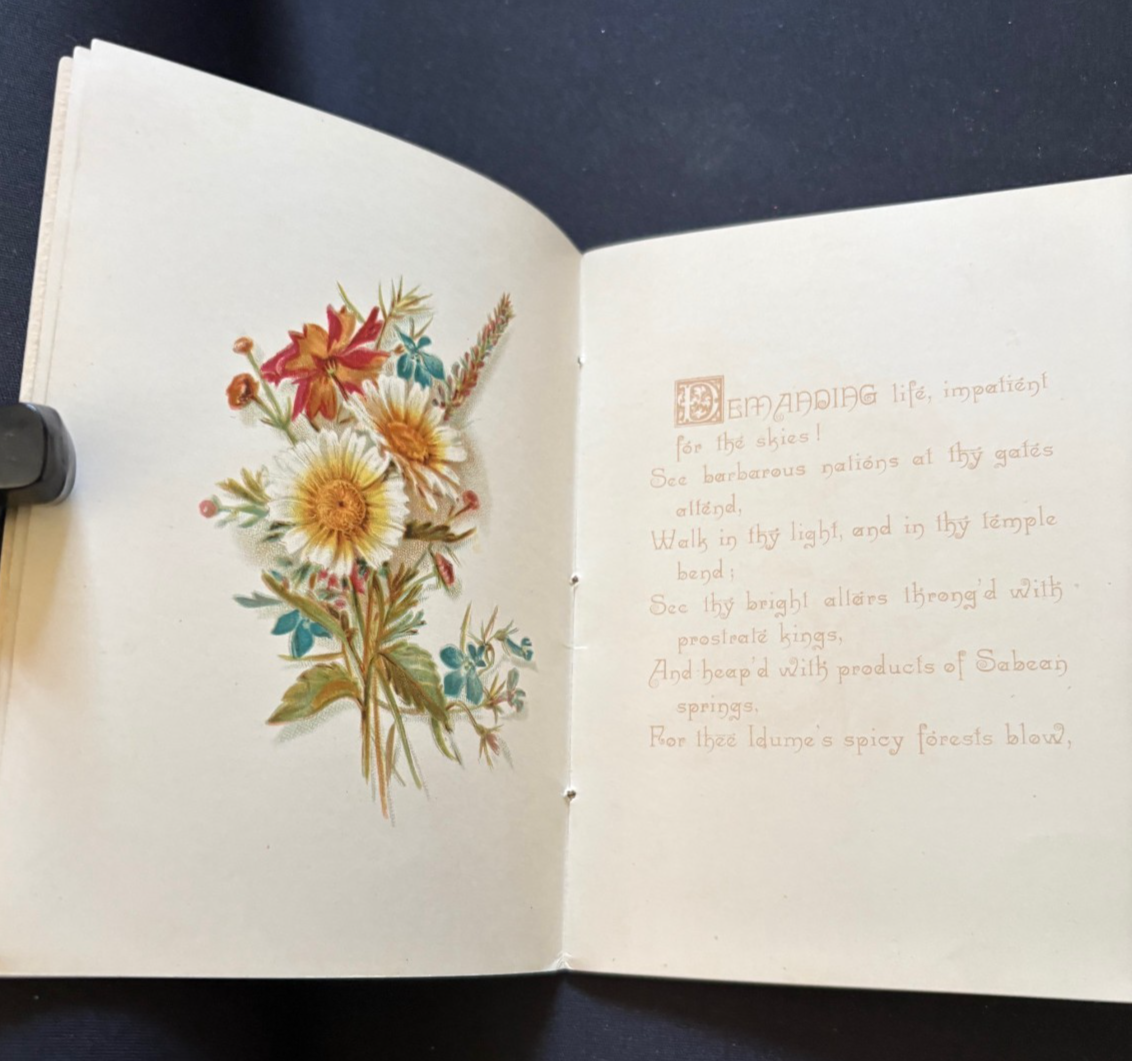 DEMANDING life, impatient
for the skies!
See barbarous nations at thy gates
attend,
Walk in thy light, and in thy temple
bend;
See thy bright altars throng'd with
prostrate kings,
And heap'd with products of Sabean
springs,
For thee Idume's spicy forests blow,